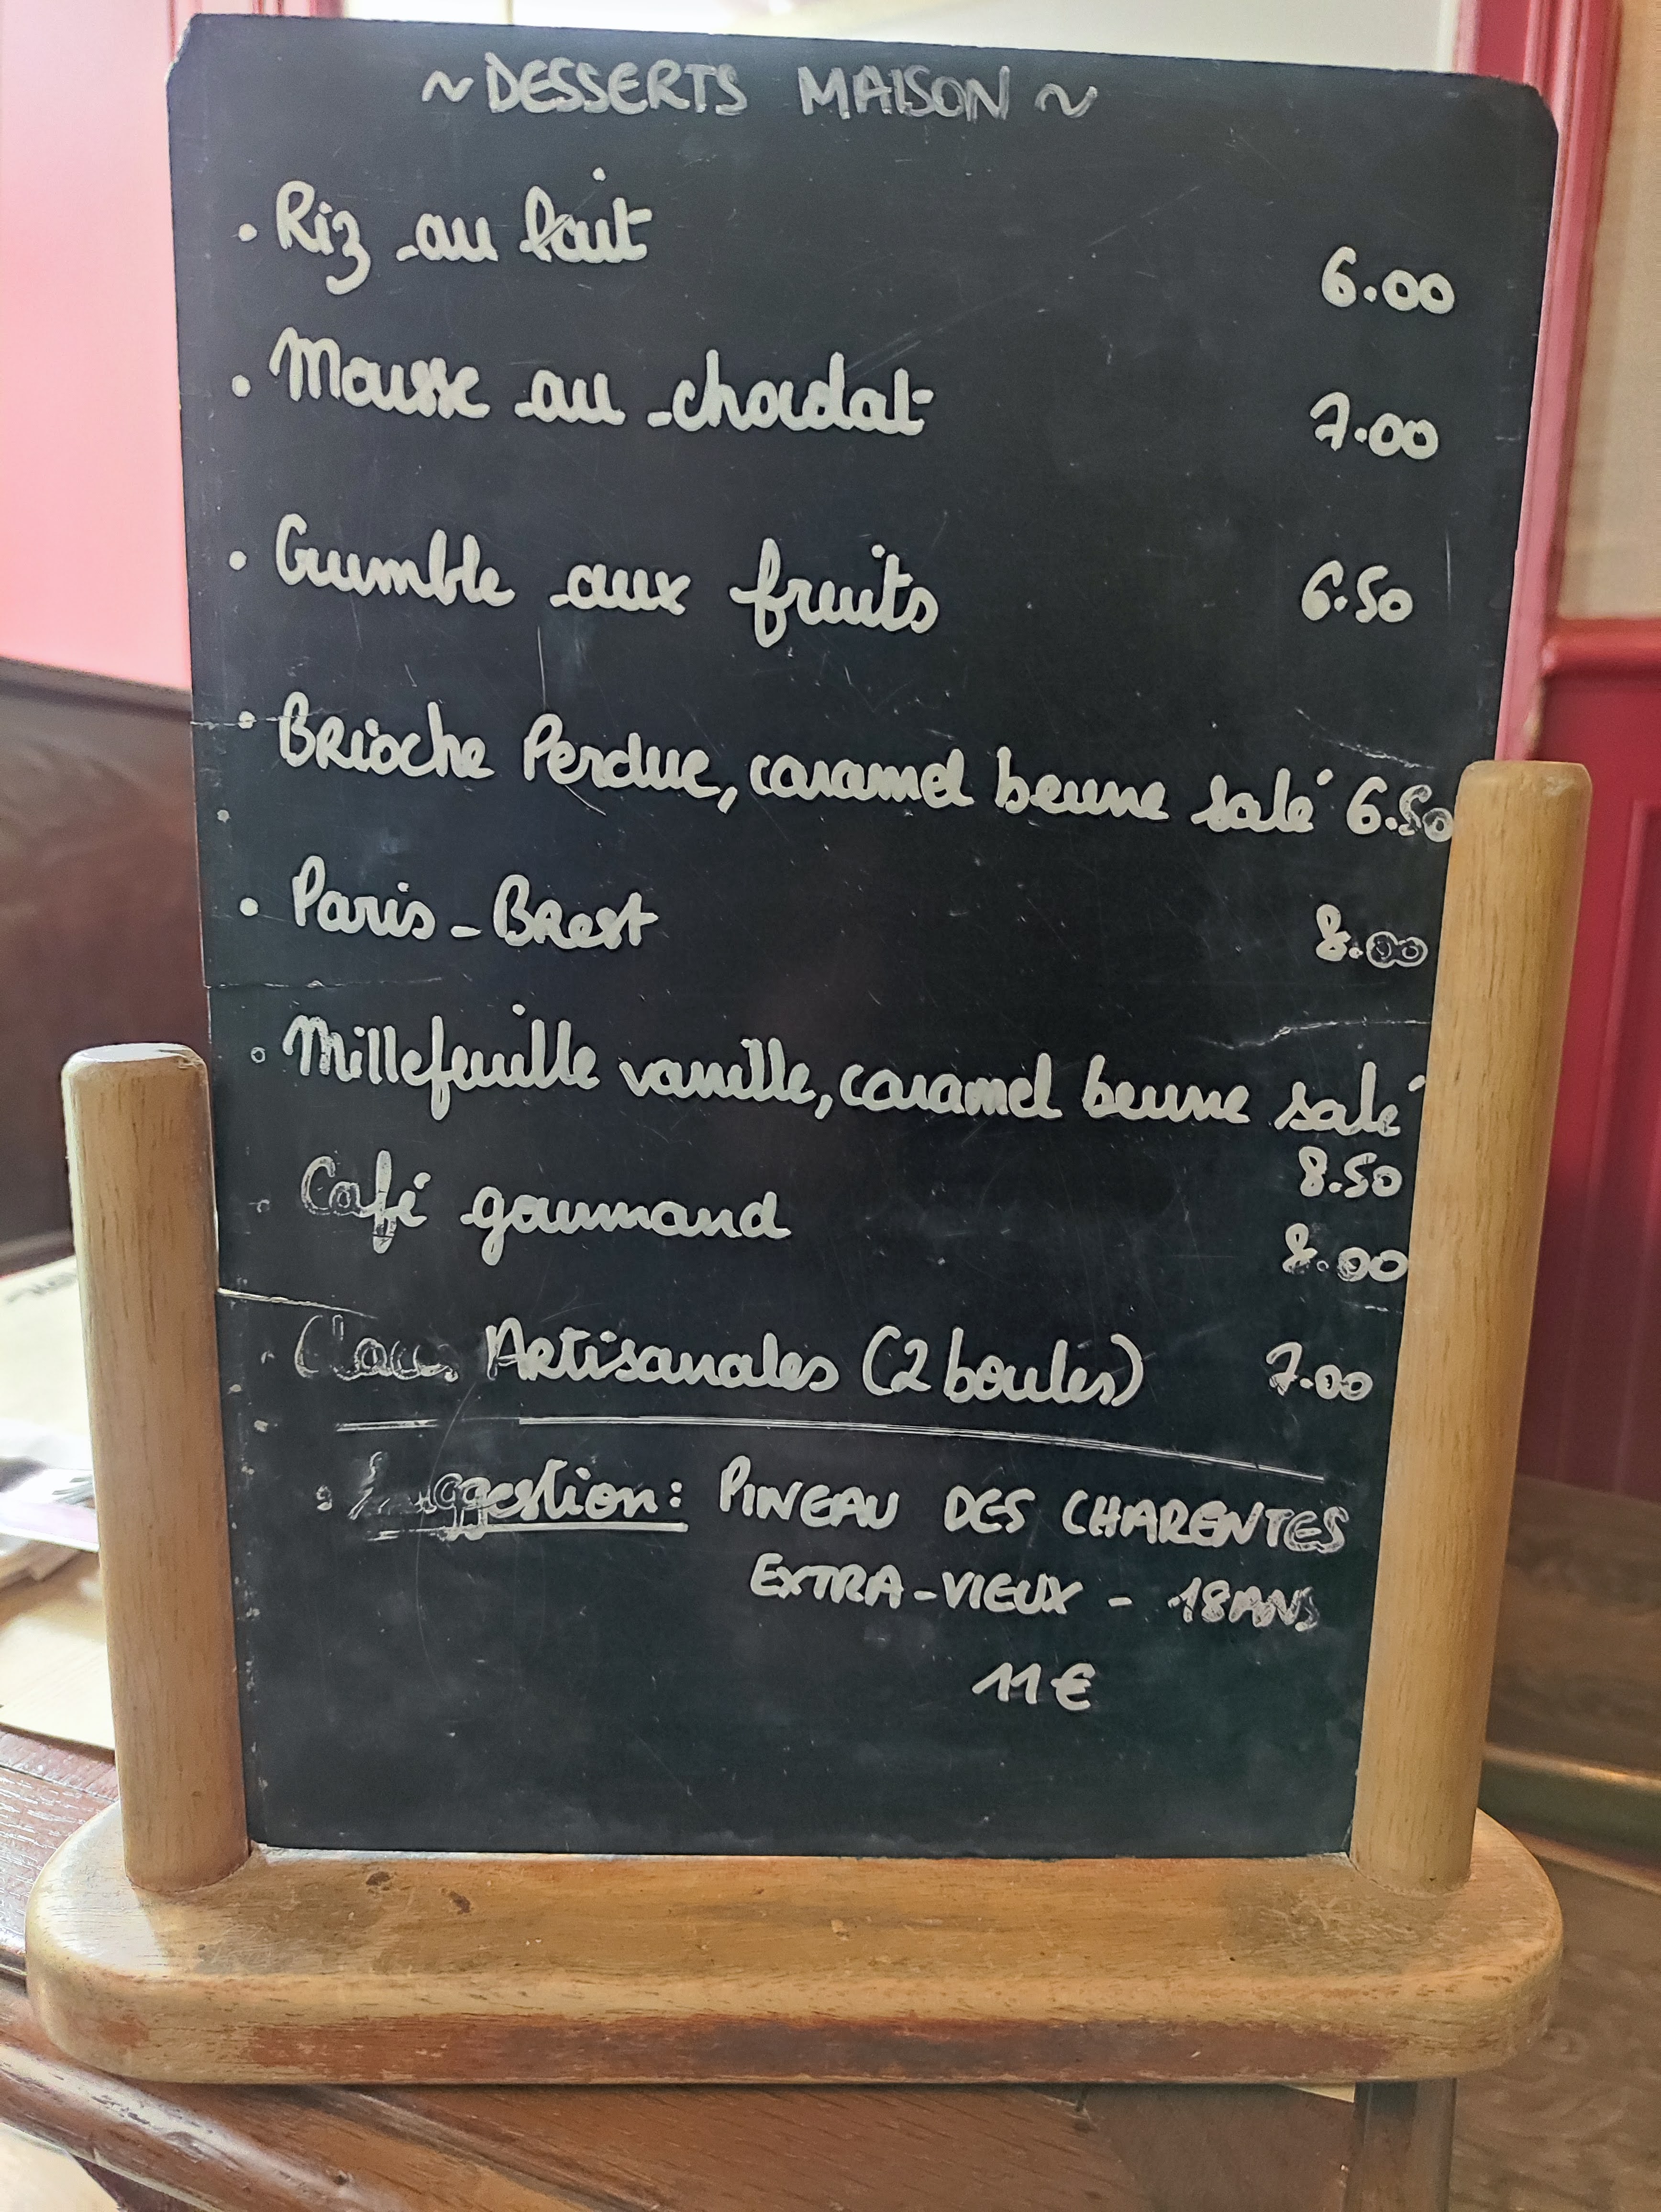 ~ DESSERTS MAISON ~
• Riz au lait 6.00
• Mousse au chocolat 7.00
• Crumble aux fruits 6.50
• BRioche Perdue, caramel beurre salé 6.50
• Paris-BRest 8.00
• Millefeuille vanille, caramel beurre salé
8.50
Café gourmand 8.00
Glaces Artisanales (2 boules) 7.00
• Suggestion: PINEAU DES CHARENTES
EXTRA-VIEUX - 18 ANS
11€